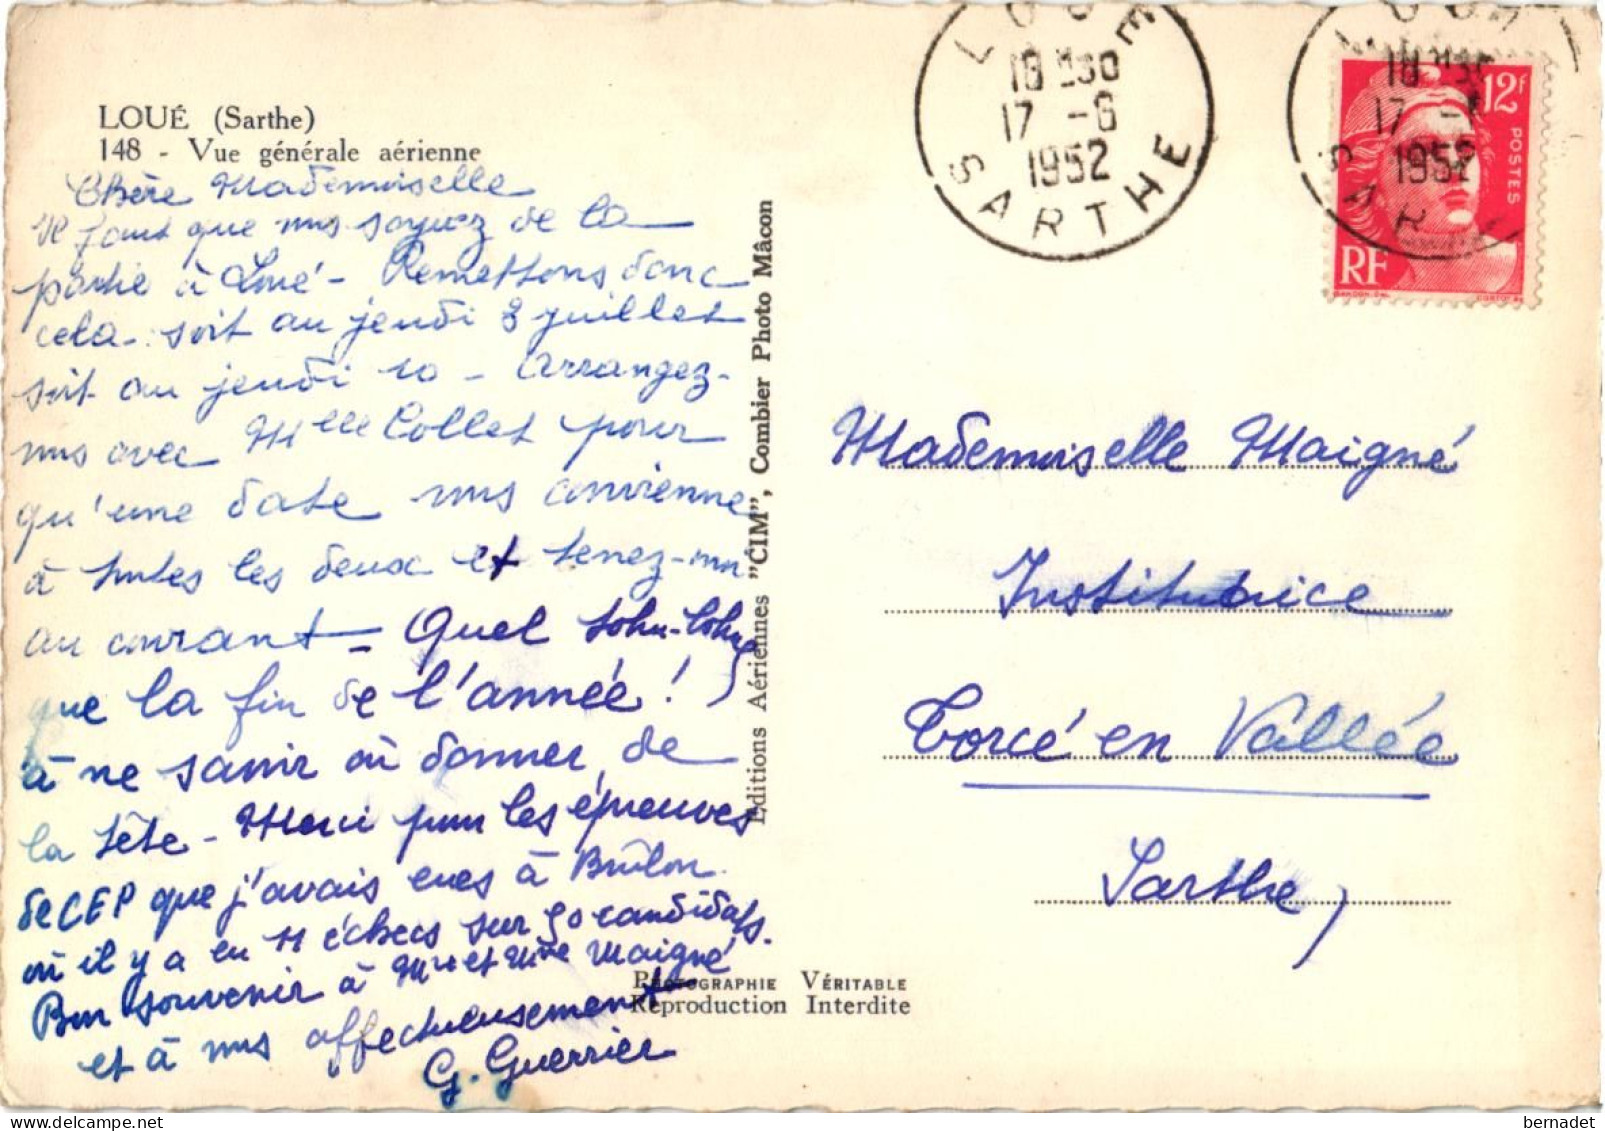 LOUÉ (Sarthe)
148 - Vue générale aérienne
Chère Mademoiselle
Il faut que vous soyez de la
partie à Loué - Remettons donc
cela - soit au jeudi 3 juillet
soit au jeudi 10 - Arrangez-
vous avec Mlle Collet pour
qu'une date vous convienne
à toutes les deux et tenez-moi
au courant - Quel tohu-bohu
que la fin de l'année !
à ne savoir où donner de
la tête - Merci pour les épreuves
de CEP que j'avais eues à Brûlon
où il y a eu 11 échecs sur 50 candidats.
Bon souvenir à Mr et Mme Maigné
et à vous affectueusement
G. Guerrier
Editions Aériennes "CIM", Combier Photo Mâcon
PHOTOGRAPHIE VÉRITABLE
Reproduction Interdite
LOUE
18 H30
17 -6
1952
SARTHE
LOUE
18 H30
17 -6
1952
SAR
12f
POSTES
RF
GANDON
Mademoiselle Maigné
Institutrice
Torcé en Vallée
Sarthe
bernadet